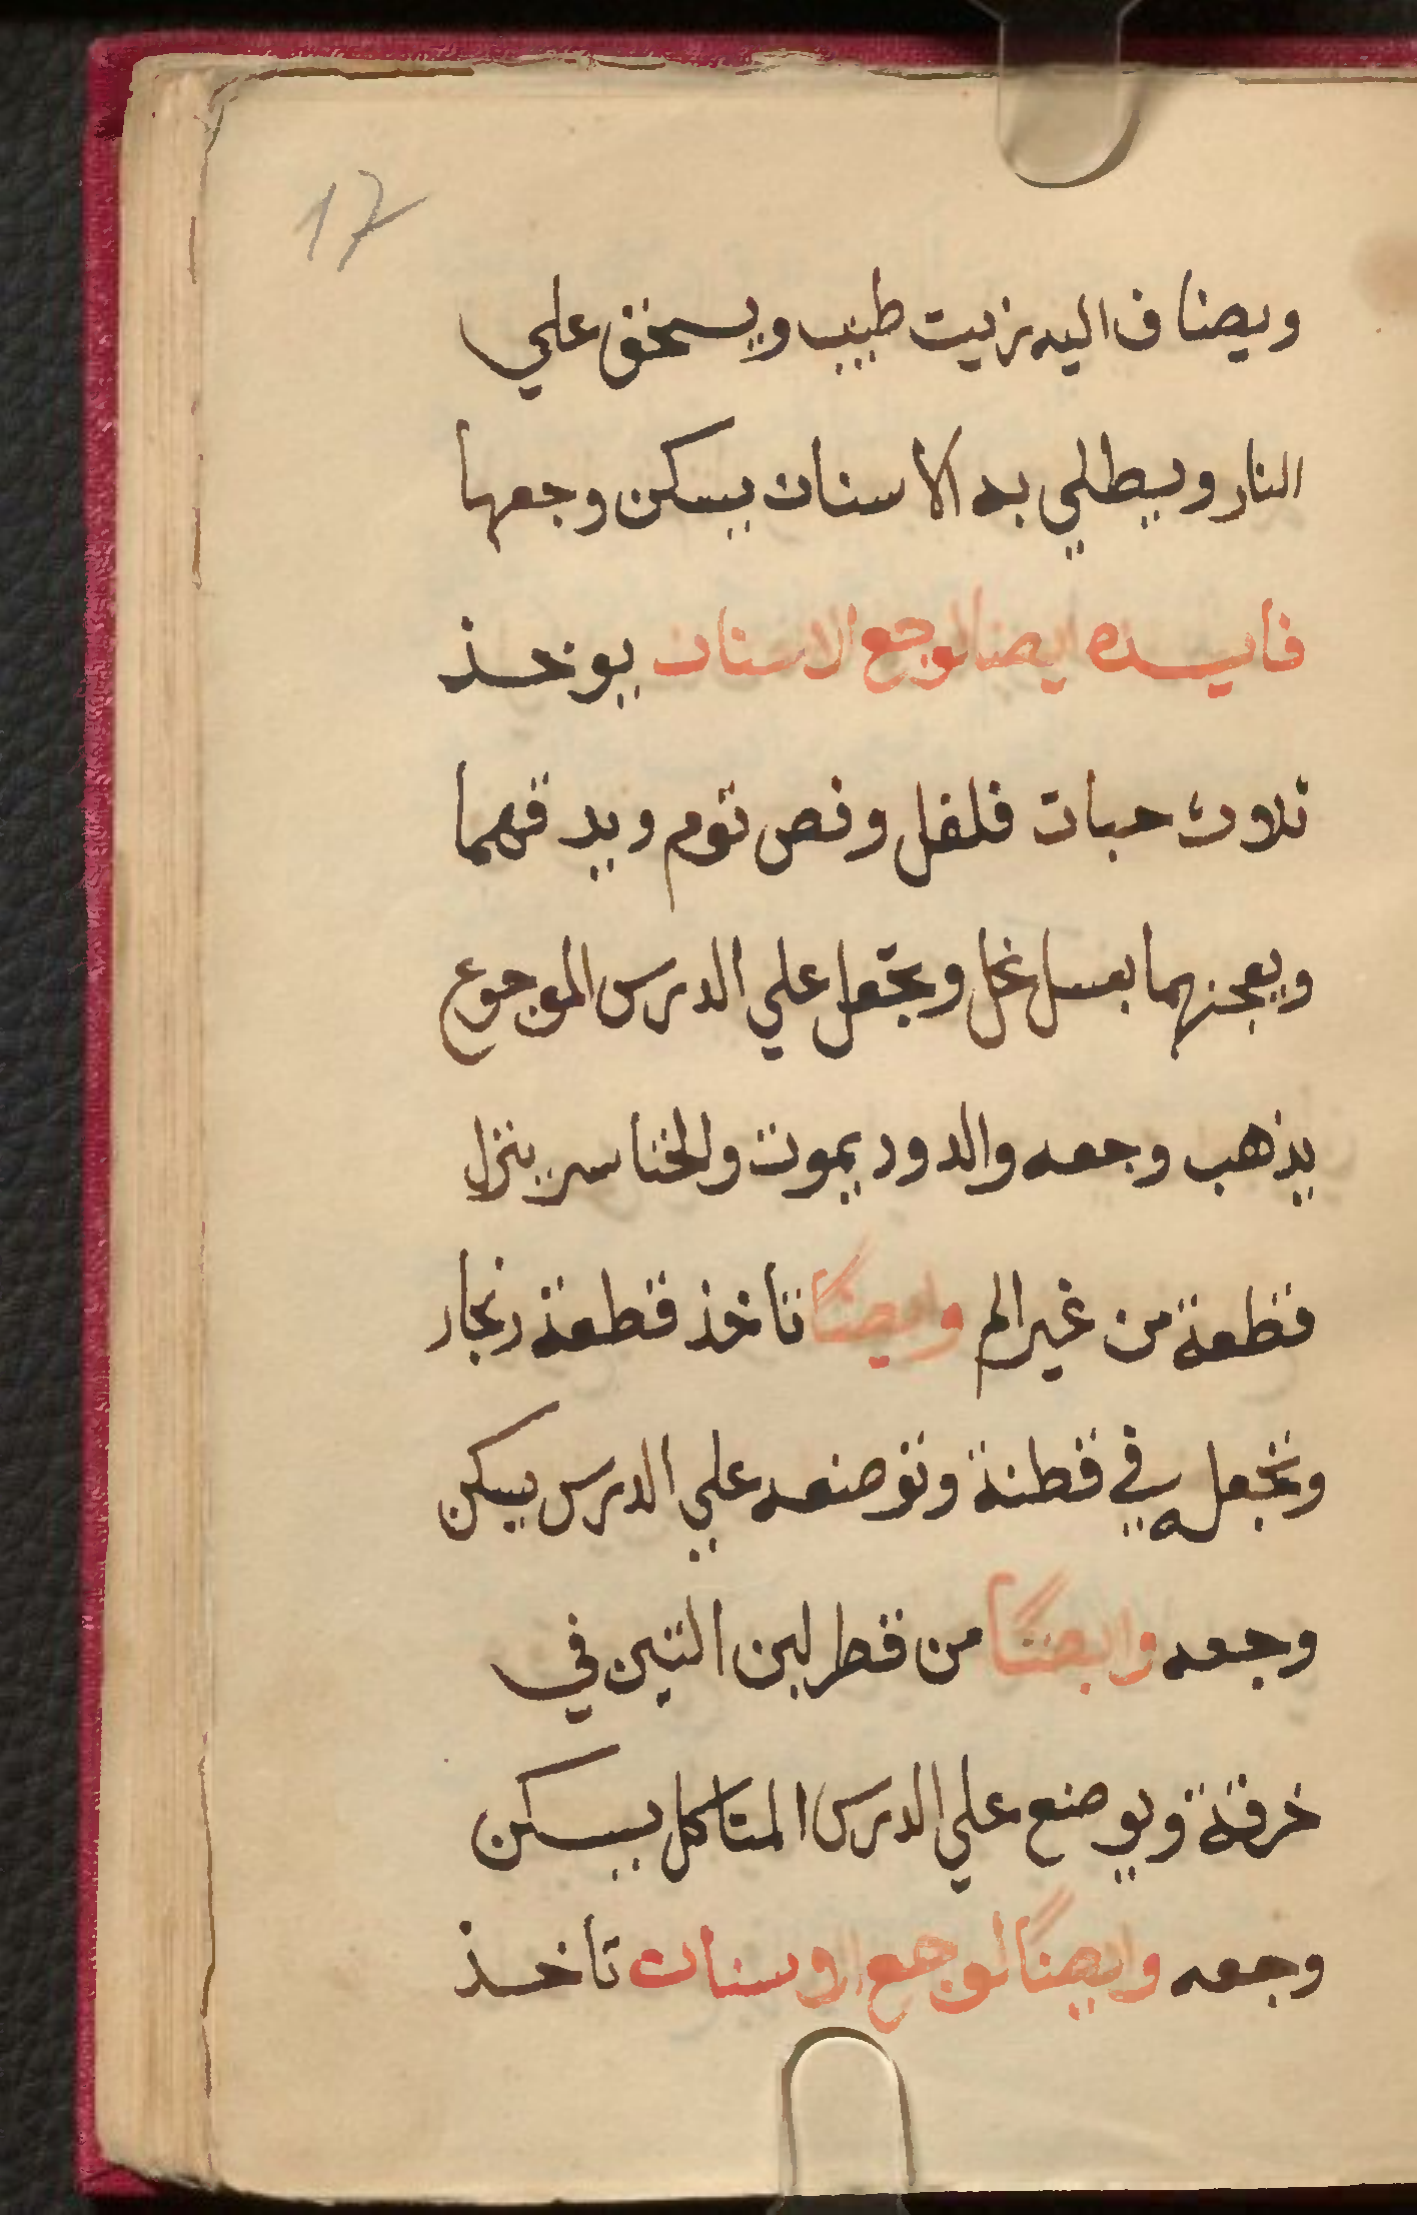 17
ويضاف اليه زيت طيب ويسخن علي
النار ويطلي به الاسنان يسكن وجعها
فايده ايضا لوجع الاسنان يوخذ
ثلاث حبات فلفل وفص توم ويدقهما
ويعجنهما بعسل نحل وتجعل علي الدرس الموجوع
يذهب وجعه والدود يموت والخناسر ينزل
قطعة من غير الم وايضًا تاخذ قطعة زنجار
وتجعله في قطنة وتوضعه علي الدرس يسكن
وجعه وايضًا من قطر لبن التين في
خرقة ويوضع علي الدرس المتاكل يسكن
وجعه وايضًا لوجع الاسنان تاخذ